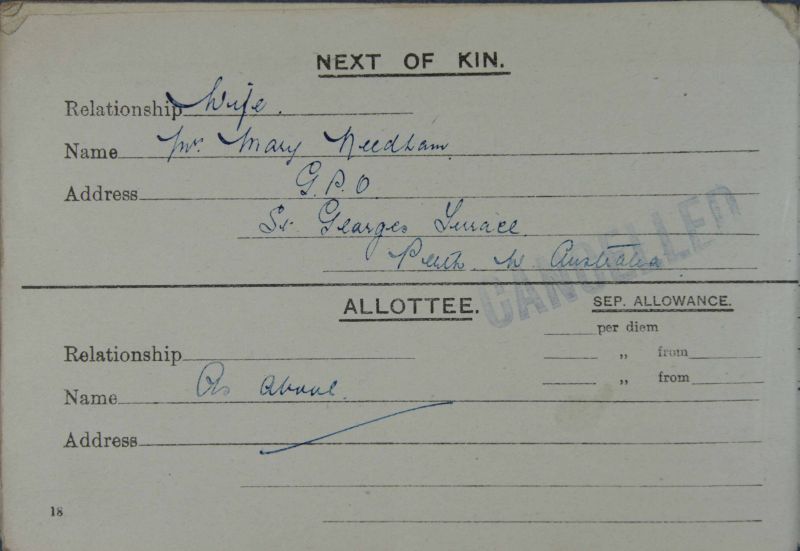 NEXT OF KIN.
Relationship Wife.
Name Mrs. Mary Needham
Address G.P.O.
St. Georges Terrace.
Perth W Australia
CANCELLED
ALLOTTEE. SEP. ALLOWANCE.
per diem
Relationship „ from
„ from
Name As above.
Address
18